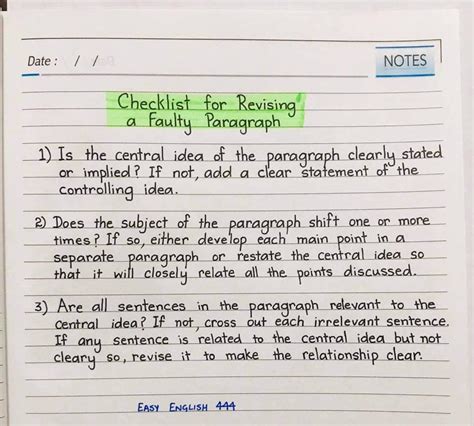 Date : / /
NOTES
Checklist for Revising
a Faulty Paragraph
1) Is the central idea of the paragraph clearly stated
or implied? If not, add a clear statement of the
controlling idea.
2) Does the subject of the paragraph shift one or more
times? If so, either develop each main point in a
separate paragraph or restate the central idea so
that it will closely relate all the points discussed.
3) Are all sentences in the paragraph relevant to the
central idea? If not, cross out each irrelevant sentence.
If any sentence is related to the central idea but not
cleary so, revise it to make the relationship clear.
EASY ENGLISH 444